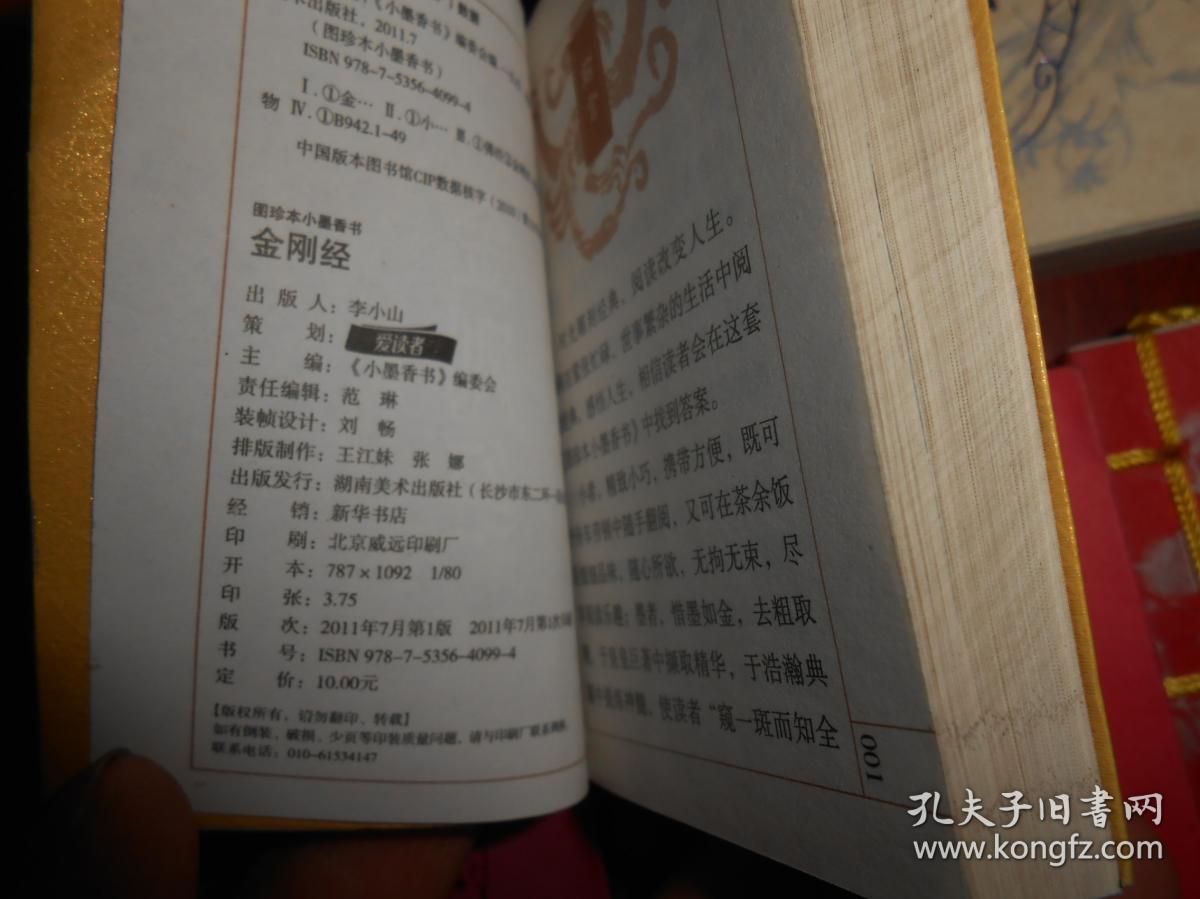 《小墨香书》编委会编
术出版社，2011.7
（图珍本小墨香书）
ISBN 978-7-5356-4099-4
Ⅰ.①金… Ⅱ.①小… Ⅲ.①佛
物 Ⅳ.①B942.1-49
中国版本图书馆CIP数据核字（2010）
图珍本小墨香书
金刚经
出 版 人：李小山
策 划：爱读者
主 编：《小墨香书》编委会
责任编辑：范 琳
装帧设计：刘 畅
排版制作：王江妹 张 娜
出版发行：湖南美术出版社（长沙市东二环一
经 销：新华书店
印 刷：北京威远印刷厂
开 本：787×1092 1/80
印 张：3.75
版 次：2011年7月第1版 2011年7月第1次
书 号：ISBN 978-7-5356-4099-4
定 价：10.00元
【版权所有，请勿翻印、转载】
如有倒装、破损、少页等印装质量问题，请与印刷厂联系调换。
联系电话：010-61534147
经典，阅读改变人生。
忙碌、世事繁杂的生活中阅
感悟人生，相信读者会在这套
小墨香书》中找到答案。
小者，精致小巧，携带方便，既可
车劳顿中随手翻阅，又可在茶余饭
细品味，随心所欲，无拘无束，尽
阅读乐趣；墨者，惜墨如金，去粗取
于皇皇巨著中撷取精华，于浩瀚典
中提炼神髓，使读者“窥一斑而知全
001
孔夫子旧书网
www.kongfz.com